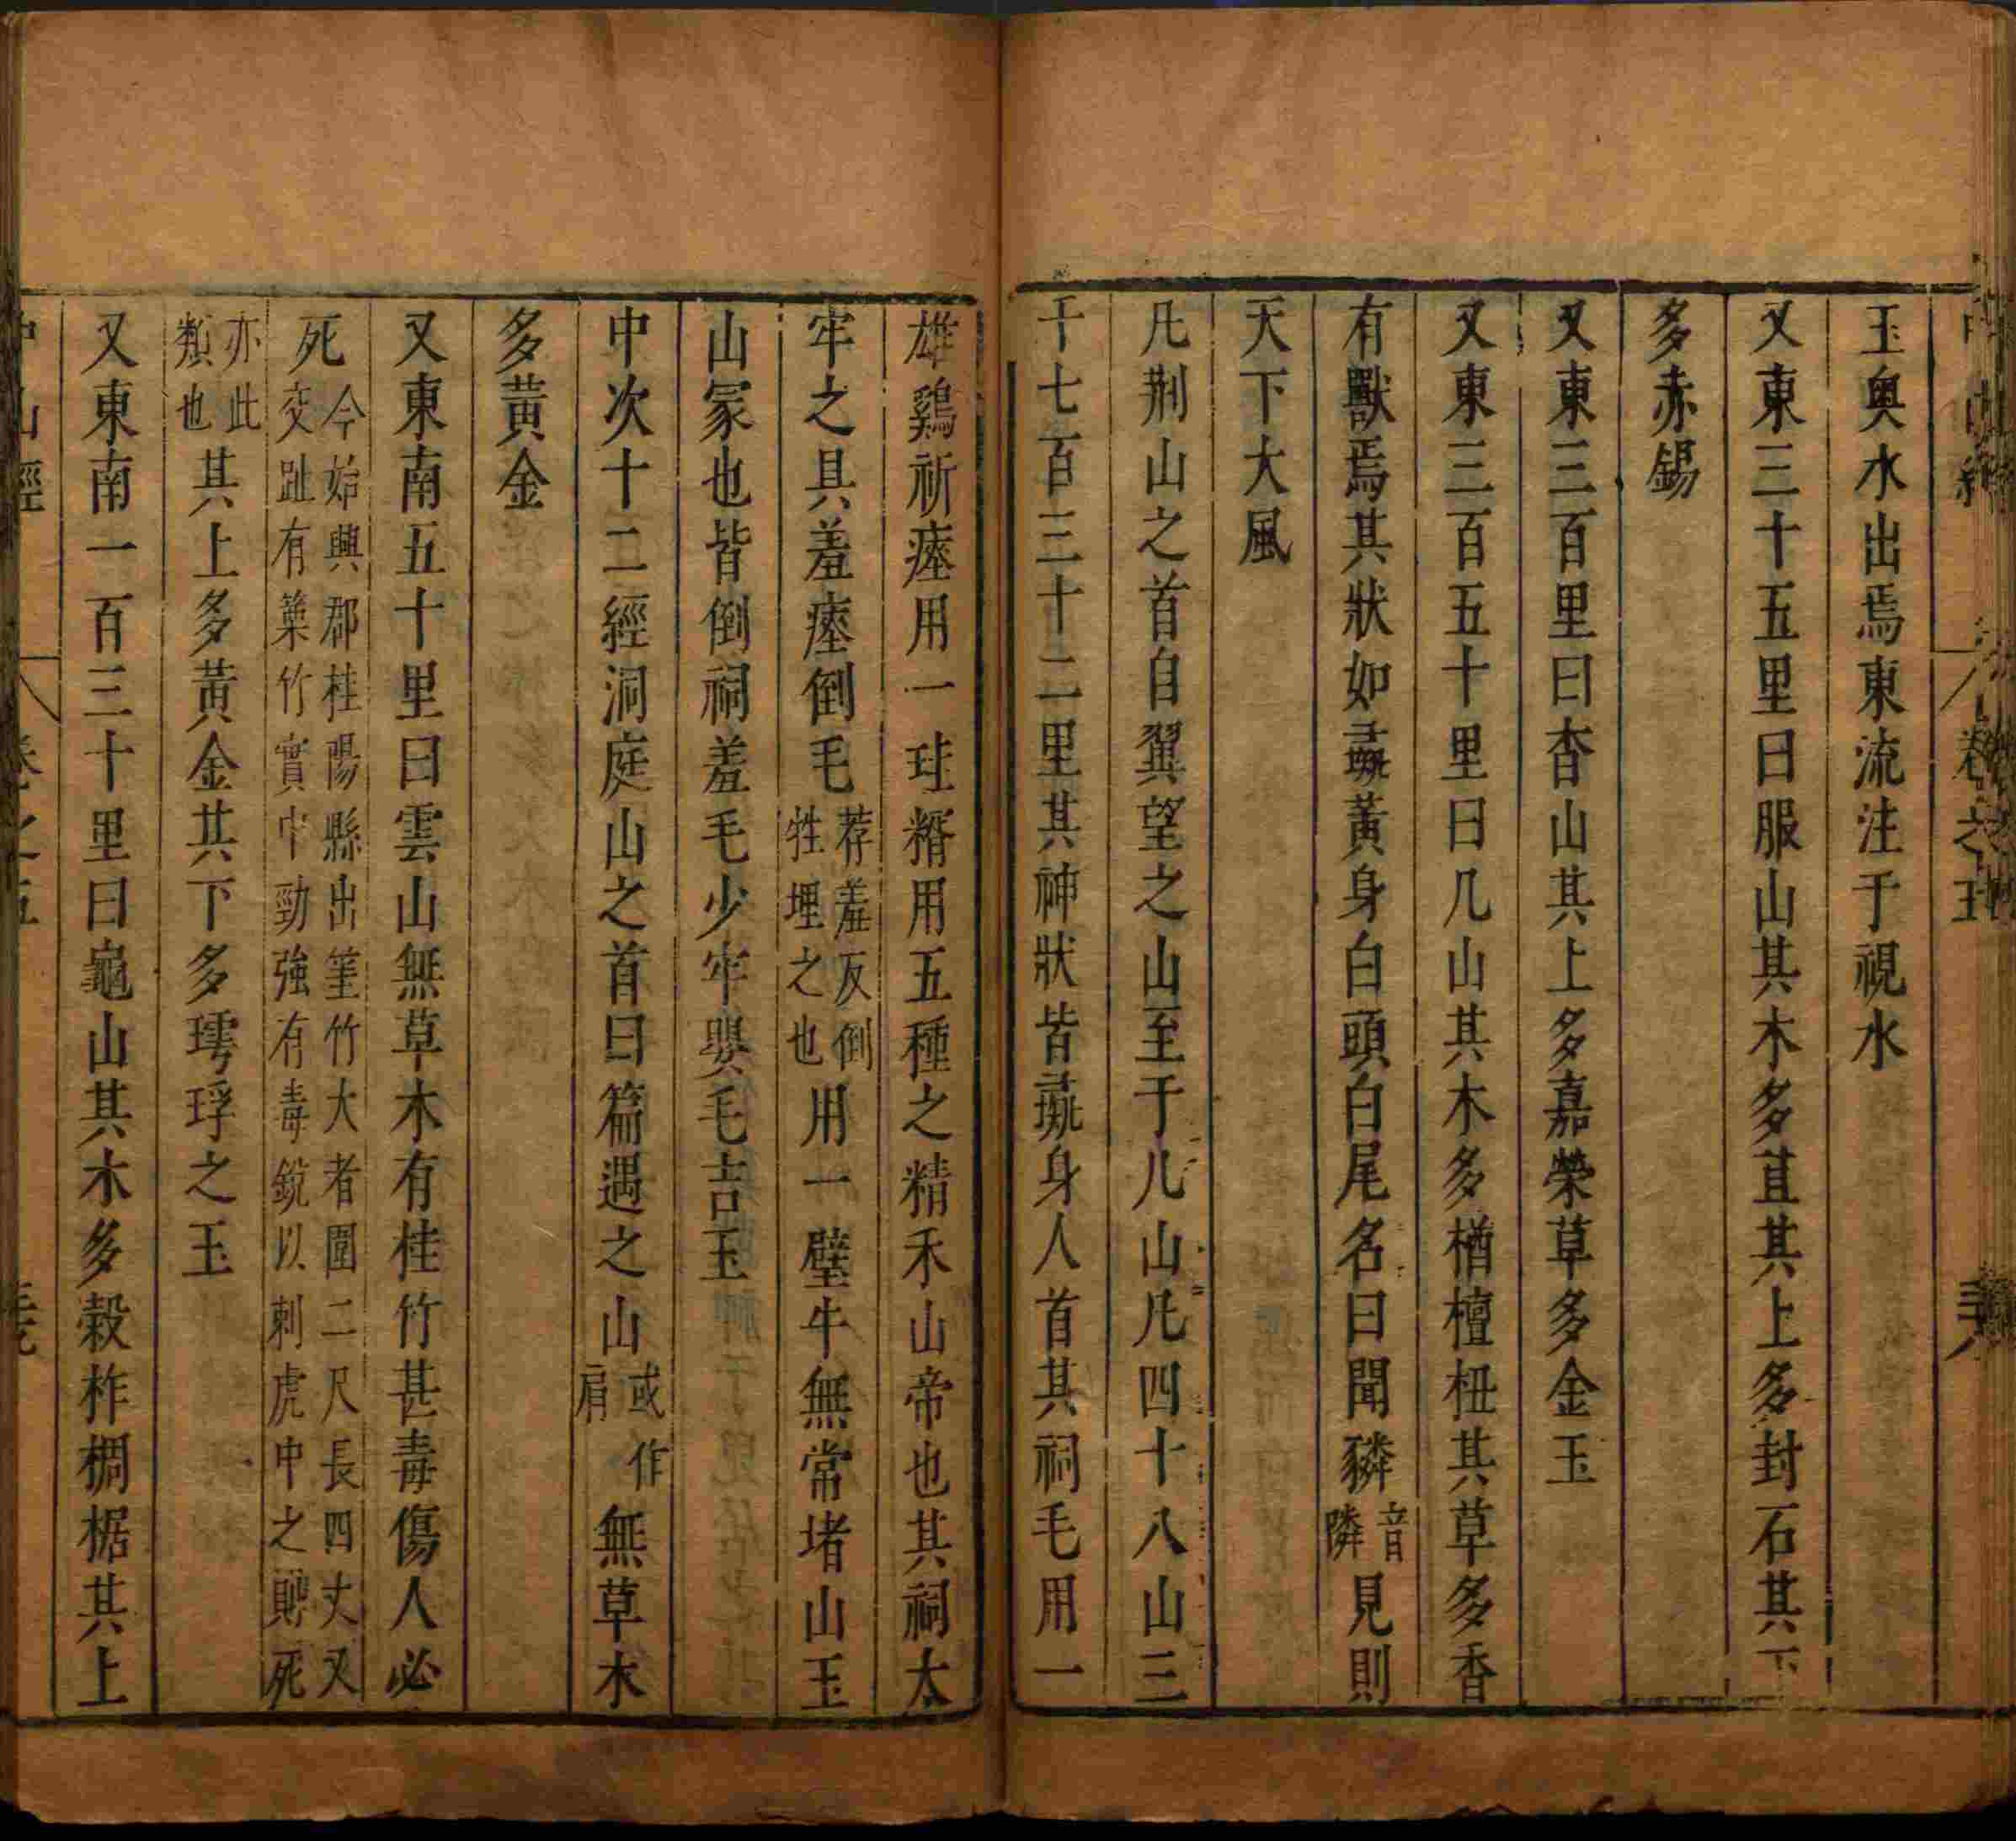 玉奧水出焉東流注于視水
又東三十五里曰服山其木多苴其上多封石其下
多赤錫
又東三百里曰杳山其上多嘉榮草多金玉
又東三百五十里曰几山其木多楢檀杻其草多香
有獸焉其狀如彘黃身白頭白尾名曰聞豨音隣見則
天下大風
凡荆山之首自翼望之山至于几山凡四十八山三
千七百三十二里其神狀皆彘身人首其祠毛用一
雄鷄祈瘞用一珪糈用五種之精禾山帝也其祠太
牢之具羞瘞倒毛荐羞反倒牲埋之也用一璧牛無常堵山玉
山冢也皆倒祠羞毛少牢嬰毛吉玉
中次十二經洞庭山之首曰篇遇之山或作肩無草木
多黃金
又東南五十里曰雲山無草木有桂竹甚毒傷人必
死今始興郡桂陽縣出筀竹大者圍二尺長四丈又交趾有篥竹實中勁強有毒銳以刺虎中之則死
亦此類也其上多黃金其下多㻬琈之玉
又東南一百三十里曰龜山其木多榖柞椆椐其上
中山經 卷之五